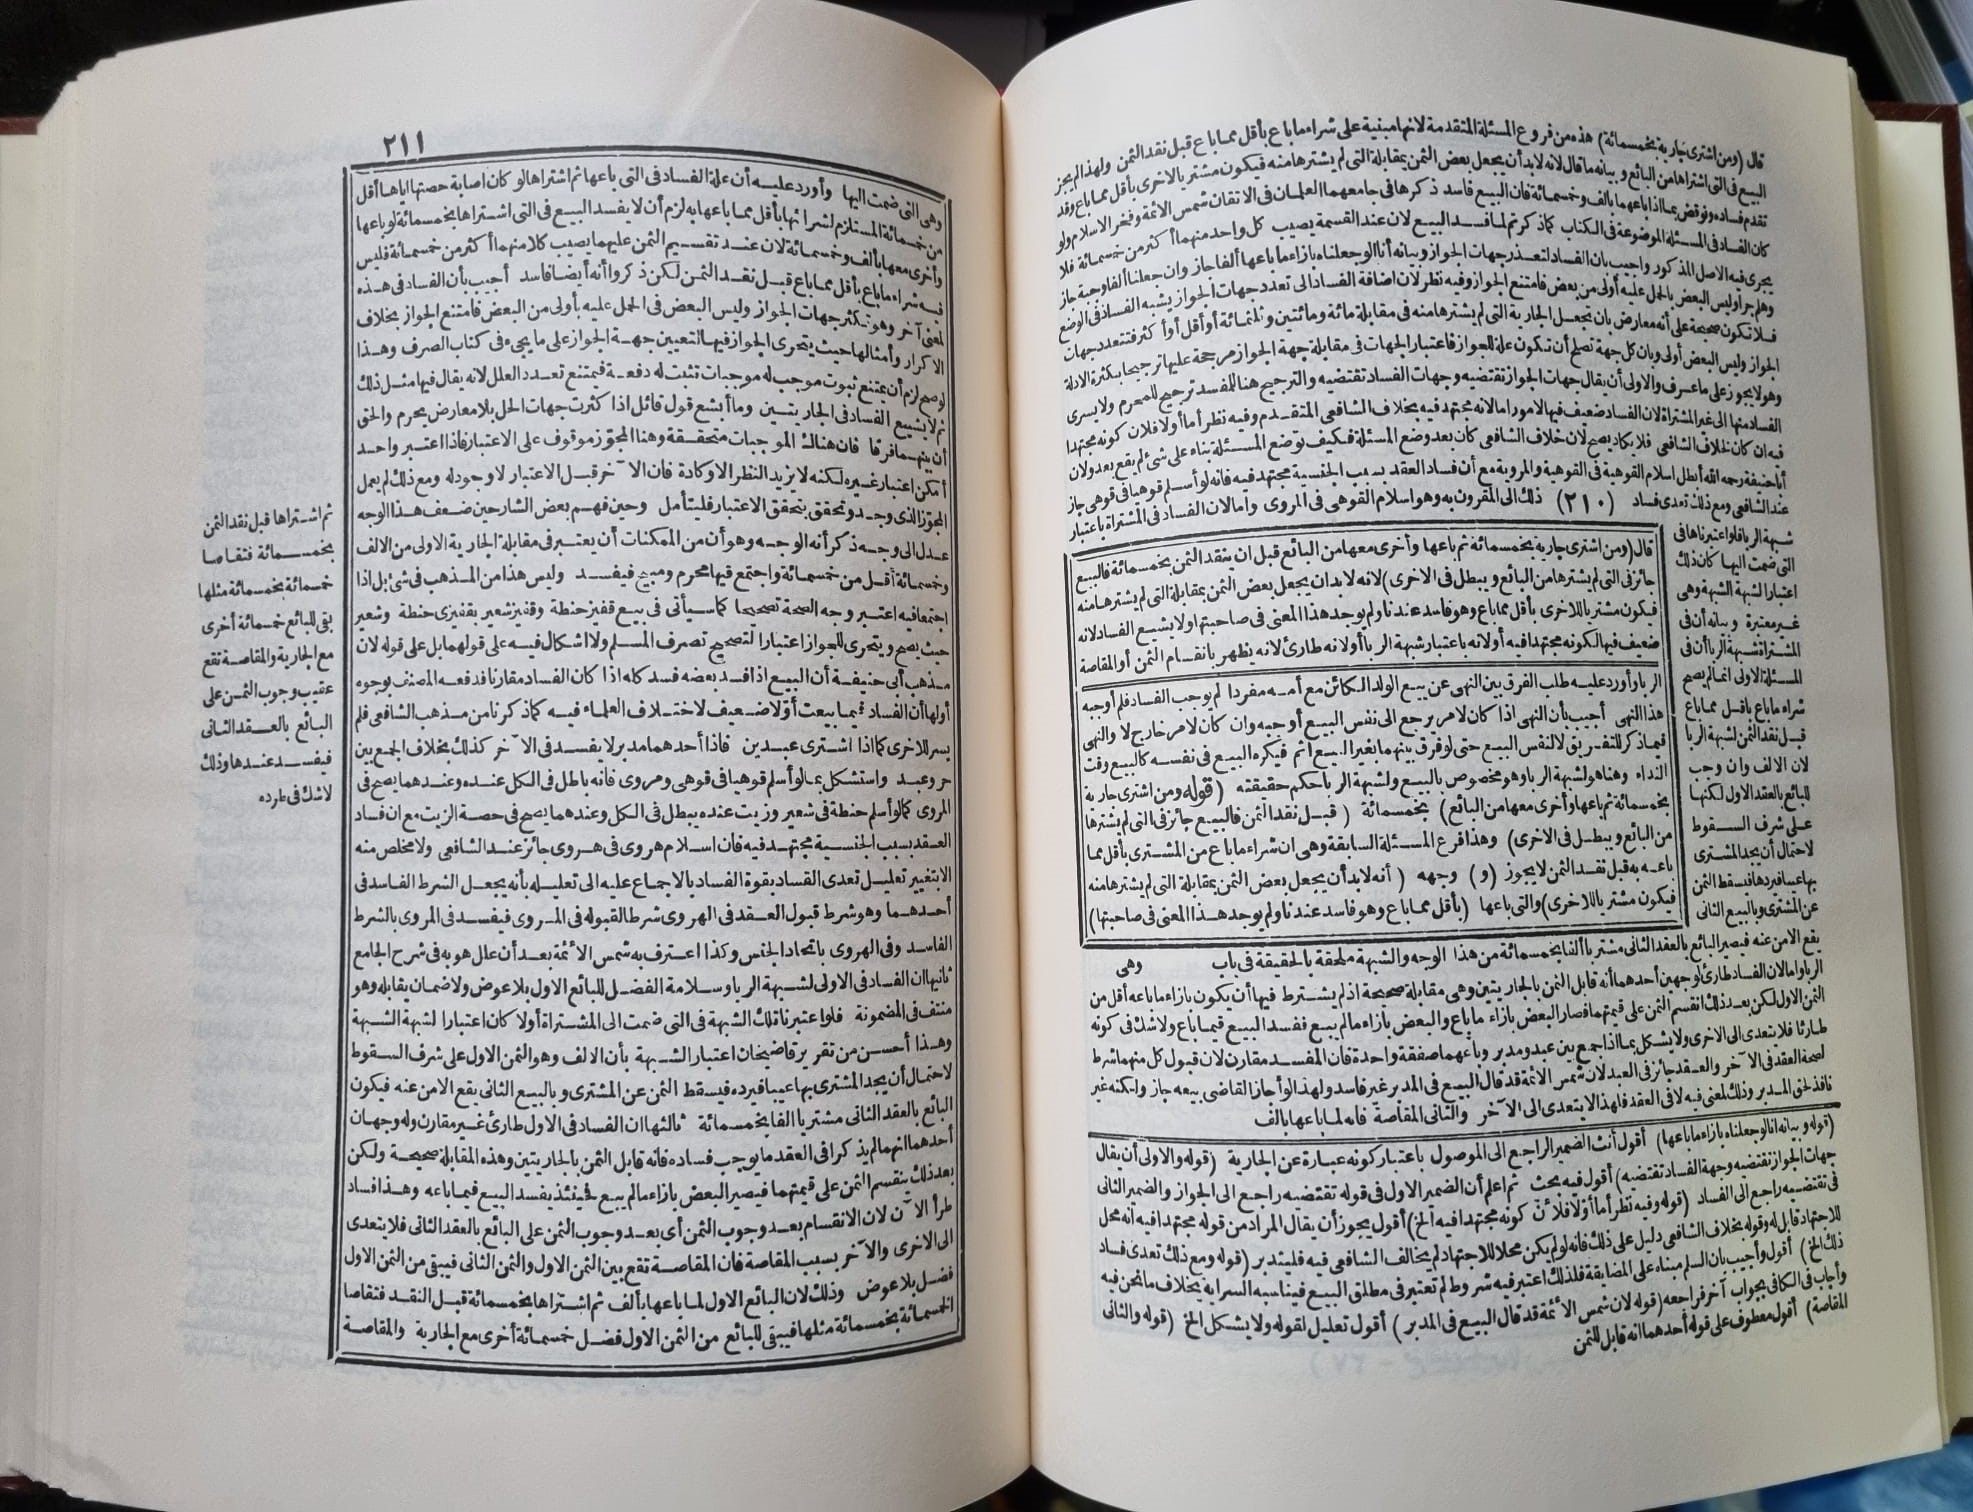 قال (ومن اشترى جارية بخمسمائة) هذه من فروع المسئلة المتقدمة لانها مبنية على شراء ما باع بأقل مما باع قبل نقد الثمن ولهذا لم يجز
البيع في التي اشتراها من البائع وبيانه ما قال لانه لابد أن يجعل بعض الثمن بمقابلة التي لم يشترها منه فيكون مشتريا لاخرى بأقل مما باع وقد
تقدم فساده ونوقض بما اذا باعهما بألف وخمسمائة فان البيع فاسد ذكرها في جامعهما العلمان في الاتقان شمس الائمة وفخر الاسلام ولو
كان الفساد في المسئلة الموضوعة في الكتاب كما ذكرتم لما فسد البيع لان عند القسمة يصيب كل واحد منهما أكثر من خمسمائة فلا
يجرى فيه الاصل المذكور واجيب بان الفساد لتعذر جهات الجواز وبيانه أنا لو جعلناه بازاء ما باعها ألفا جاز وان جعلنا ألفا وحبة جاز
وهلم جرا وليس البعض بالحمل عليه أولى من بعض فامتنع الجواز وفيه نظر لان اضافة الفساد الى تعدد جهات الجواز يشبه الفساد في الوضع
فلا تكون صحيحة على أنه معارض بان يجعل الجارية التي لم يشترها منه في مقابلة مائة ومائتين وثلثمائة أو أقل أو أكثر فتتعدد جهات
الجواز وليس البعض أولى وبان كل جهة تصلح أن تكون علة للجواز فاعتبار الجهات في مقابلة جهة الجواز مرجحة عليها ترجيحا بكثرة الادلة
وهو لا يجوز على ما عرف والاولى أن يقال جهات الجواز تقتضيه وجهات الفساد تقتضيه والترجيح هنا للمفسد ترجيح للمحرم ولا يسرى
الفساد منها الى غير المشتراة لان الفساد ضعيف فيها لامور امالانه مجتهد فيه بخلاف الشافعي المتقدم وفيه نظر أما أولا فلان كونه مجتهدا
فيه ان كان لخلاف الشافعي فلا يكاد يصح لان خلاف الشافعي كان بعد وضع المسئلة فكيف توضع المسئلة بناء على شئ لم يقع بعد ولان
أبا حنيفة رحمه الله أبطل اسلام القوهية في القوهية والمروية مع أن فساد العقد بسبب الجنسية مجتهد فيه فانه لو أسلم قوهيا في قوهى جاز
عند الشافعي ومع ذلك تعدى فساد (٢١٠) ذلك الى المقرون به وهو اسلام القوهى في المروى وامالان الفساد في المشتراة باعتبار
شبهة الربا فلو اعتبرناها في
التي ضمت اليها كان ذلك
اعتبارا لشبهة الشبهة وهى
غير معتبرة وبيانه أن في
المشتراة شبهة الربا أن في
المسئلة الاولى انما لم يصح
شراء ما باع باقل مما باع
قبل نقد الثمن لشبهة الربا
لان الالف وان وجب
للبائع بالعقد الاول لكنها
على شرف السقوط
لاحتمال أن يجد المشترى
بها عيبا فيردها فيسقط الثمن
عن المشترى وبالبيع الثانى
قال (ومن اشترى جارية بخمسمائة ثم باعها وأخرى معها من البائع قبل ان ينقد الثمن بخمسمائة فالبيع
جائز في التي لم يشترها من البائع ويبطل في الاخرى) لانه لابد ان يجعل بعض الثمن بمقابلة التي لم يشترها منه
فيكون مشتريا للاخرى بأقل مما باع وهو فاسد عندنا ولم يوجد هذا المعنى في صاحبتها ولا يشيع الفساد لانه
ضعيف فيها لكونه مجتهدا فيه أو لانه باعتبار شبهة الربا أو لانه طارئ لانه يظهر بانقسام الثمن أو المقاصة
الربا وأورد عليه طلب الفرق بين النهى عن بيع الولد الكائن مع أمه مفردا لم يوجب الفساد فلم أوجبه
هذا النهى أجيب بأن النهى اذا كان لامر يرجع الى نفس البيع أوجبه وان كان لامر خارج لا والنهى
فيما ذكر للتفريق لا لنفس البيع حتى لو فرق بينهما بغير البيع اثم فيكره البيع في نفسه كالبيع وقت
النداء وهنا هو لشبهة الربا وهو مخصوص بالبيع ولشبهة الربا حكم حقيقته (قوله ومن اشترى جارية
بخمسمائة ثم باعها وأخرى معها من البائع) بخمسمائة (قبل نقد الثمن فالبيع جائز في التي لم يشترها
من البائع ويبطل في الاخرى) وهذا فرع المسئلة السابقة وهى ان شراء ما باع من المشترى بأقل مما
باعه به قبل نقد الثمن لا يجوز (و) وجهه (أنه لابد أن يجعل بعض الثمن بمقابلة التي لم يشترها منه
فيكون مشتريا للاخرى) والتي باعها (بأقل مما باع وهو فاسد عندنا ولم يوجد هذا المعنى في صاحبتها)
وهى
يقع الامن عنه فيصير البائع بالعقد الثانى مشتريا ألفا بخمسمائة من هذا الوجه والشبهة ملحقة بالحقيقة في باب
الربا وامالان الفساد طارئ لوجهين أحدهما أنه قابل الثمن بالجاريتين وهى مقابلة صحيحة اذ لم يشترط فيها أن يكون بازاء ما باعه أقل من
الثمن الاول لكن بعد ذلك انقسم الثمن على قيمتهما فصار البعض بازاء ما باع والبعض بأزاء ما لم يبع ففسد البيع فيما باع ولا شك في كونه
طارئا فلا يتعدى الى الاخرى ولا يشكل بما اذا جمع بين عبد ومدبر وباعهما صفقة واحدة فان المفسد مقارن لان قبول كل منهما شرط
لصحة العقد في الآخر والعقد جائز في العبد لان شمس الائمة قد قال البيع في المدبر غير فاسد ولهذا لو أجاز القاضى بيعه جاز ولكنه غير
نافذ لحق المدبر وذلك لمعنى فيه لا في العقد فلهذا لا يتعدى الى الآخر والثانى المقاصة فانه لما باعها بالف
(قوله وبيانه انا لو جعلناه بازاء ما باعها) أقول أنث الضمير الراجع الى الموصول باعتبار كونه عبارة عن الجارية (قوله والاولى أن يقال
جهات الجواز تقتضيه وجهة الفساد تقتضيه) أقول فيه بحث ثم اعلم أن الضمير الاول في قوله تقتضيه راجع الى الجواز والضمير الثانى
في تقتضيه راجع الى الفساد (قوله وفيه نظر أما أولا فلأن كونه مجتهدا فيه الخ) أقول يجوز أن يقال المراد من قوله مجتهدا فيه أنه محل
للاجتهاد قابل له وقوله بخلاف الشافعي دليل على ذلك فانه لو لم يكن محلا للاجتهاد لم يخالف الشافعي فيه فليتدبر (قوله ومع ذلك تعدى فساد
ذلك الخ) أقول وأجيب بان السلم مبناه على المضايقة فلذلك اعتبر فيه شروط لم تعتبر في مطلق البيع فيناسبه السراية بخلاف ما نحن فيه
وأجاب في الكافي بجواب آخر فراجعه (قوله لان شمس الأئمة قد قال البيع في المدبر) أقول تعليل لقوله ولا يشكل الخ (قوله والثانى
المقاصة) أقول معطوف على قوله أحدهما انه قابل للثمن
٢١١
وهى التي ضمت اليها وأورد عليه أن علة الفساد في التي باعها ثم اشتراها لو كان اصابة حصتها اياها أقل
من خمسمائة المستلزم لشرائها بأقل مما باعها به لزم أن لا يفسد البيع في التي اشتراها بخمسمائة لو باعها
وأخرى معها بألف وخمسمائة لان عند تقسيم الثمن عليهما يصيب كلا منهما أكثر من خمسمائة فليس
فيه شراء ما باع بأقل مما باع قبل نقد الثمن لكن ذكروا أنه أيضا فاسد أجيب بأن الفساد في هذه
لمعنى آخر وهو تكثر جهات الجواز وليس البعض في الحمل عليه بأولى من البعض فامتنع الجواز بخلاف
الاكرار وأمثالها حيث يتحرى الجواز فيها لتعيين جهة الجواز على ما يجىء في كتاب الصرف وهذا
لو صح لزم أن يمتنع ثبوت موجب له موجبات تثبت له دفعة فيمتنع تعدد العلل لانه يقال فيها مثل ذلك
ثم لا يشيع الفساد في الجاريتين وما أبشع قول قائل اذا كثرت جهات الحل بلا معارض يحرم والحق
أن بينهما فرقا فان هناك الموجبات متحققة وهنا المجوّز موقوف على الاعتبار فاذا اعتبر واحد
أمكن اعتبار غيره لكنه لا يزيد النظر الاوكادة فان الآخر قبل الاعتبار لا وجود له ومع ذلك لم يعمل
المجوّز الذى وجد وتحقق بتحقق الاعتبار فليتأمل وحين فهم بعض الشارحين ضعف هذا الوجه
عدل الى وجه ذكر أنه الوجه وهو أن من الممكنات أن يعتبر في مقابلة الجارية الاولى من الالف
وخمسمائة أقل من خمسمائة واجتمع فيها محرم ومبيح فيفسد وليس هذا من المذهب في شئ بل اذا
اجتمعا فيه اعتبر وجه الصحة تصحيحا كما سيأتى في بيع قفيز حنطة وقفيز شعير بقفيزى حنطة وشعير
حيث يصح ويتحرى للجواز اعتبارا لتصحيح تصرف المسلم ولا اشكال فيه على قولهما بل على قوله لان
مذهب أبى حنيفة أن البيع اذا فسد بعضه فسد كله اذا كان الفساد مقارنا فدفعه المصنف بوجوه
أولها أن الفساد فيما بيعت أوّلا ضعيف لاختلاف العلماء فيه كما ذكرنا من مذهب الشافعى فلم
يسر للاخرى كما اذا اشترى عبدين فاذا أحدهما مدبر لا يفسد في الآخر كذلك بخلاف الجمع بين
حر وعبد واستشكل بما لو أسلم قوهيا في قوهى ومروى فانه باطل في الكل عنده وعندهما يصح في
المروى كما لو أسلم حنطة في شعير وزيت عنده يبطل في الكل وعندهما يصح في حصة الزيت مع ان فساد
العقد بسبب الجنسية مجتهد فيه فان اسلام هروى في هروى جائز عند الشافعى ولا مخلص منه
الا بتغيير تعليل تعدى الفساد بقوة الفساد بالاجماع عليه الى تعليله بأنه يجعل الشرط الفاسد في
أحدهما وهو شرط قبول العقد في الهروى شرطا لقبوله في المروى فيفسد في المروى بالشرط
الفاسد وفى الهروى باتحاد الجنس وكذا اعترف به شمس الأئمة بعد أن علل هو به في شرح الجامع
ثانيها ان الفساد في الاولى لشبهة الربا وسلامة الفضل للبائع الاول بلا عوض ولا ضمان يقابله وهو
منتف في المضمونة فلو اعتبرنا تلك الشبهة في التي ضمت الى المشتراة أولا كان اعتبارا لشبهة الشبهة
وهذا أحسن من تقرير قاضيخان اعتبار الشبهة بأن الالف وهو الثمن الاول على شرف السقوط
لاحتمال أن يجد المشترى بها عيبا فيرده فيسقط الثمن عن المشترى وبالبيع الثانى يقع الامن عنه فيكون
البائع بالعقد الثانى مشتريا الفا بخمسمائة ثالثها ان الفساد في الاول طارئ غير مقارن وله وجهان
أحدهما انهما لم يذكرا في العقد ما يوجب فساده فانه قابل الثمن بالجاريتين وهذه المقابلة صحيحة ولكن
بعد ذلك ينقسم الثمن على قيمتهما فيصير البعض بازاء ما لم يبع فحينئذ يفسد البيع فيما باعه وهذا فساد
طرأ الآن لان الانقسام بعد وجوب الثمن أى بعد وجوب الثمن على البائع بالعقد الثانى فلا يتعدى
الى الاخرى والآخر بسبب المقاصة فان المقاصة تقع بين الثمن الاول والثمن الثانى فيبقى من الثمن الاول
فضل بلا عوض وذلك لان البائع الاول لما باعها بألف ثم اشتراها بخمسمائة قبل النقد فتقاصا
الخمسمائة بخمسمائة مثلها فيبقى للبائع من الثمن الاول فضل خمسمائة أخرى مع الجارية والمقاصة
ثم اشتراها قبل نقد الثمن
بخمسمائة فتقاصا
خمسمائة بخمسمائة مثلها
بقى للبائع خمسمائة أخرى
مع الجارية والمقاصة تقع
عقيب وجوب الثمن على
البائع بالعقد الثانى
فيفسد عندها وذلك
لا شك في طرده